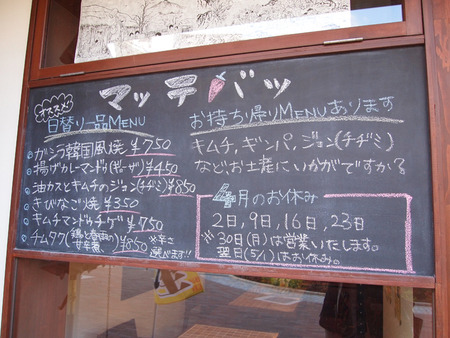 マッテバッ
オススメ!
日替り一品MENU
ガシラ韓国風焼 ¥750
揚げカレーマンドゥ(ギョーザ) ¥450
油カスとキムチのジョン(チヂミ) ¥850
きびなご焼 ¥350
キムチマンドゥチゲ ¥750
チムタク(鶏と春雨の甘辛煮) ¥850 ※辛さ選べます!!
お持ち帰りMENUあります
キムチ,ギンパ,ジョン(チヂミ)
などお土産にいかがですか?
4月のお休み
2日,9日,16日,23日
※30日(月)は営業いたします。
翌日(5/1)はお休み。